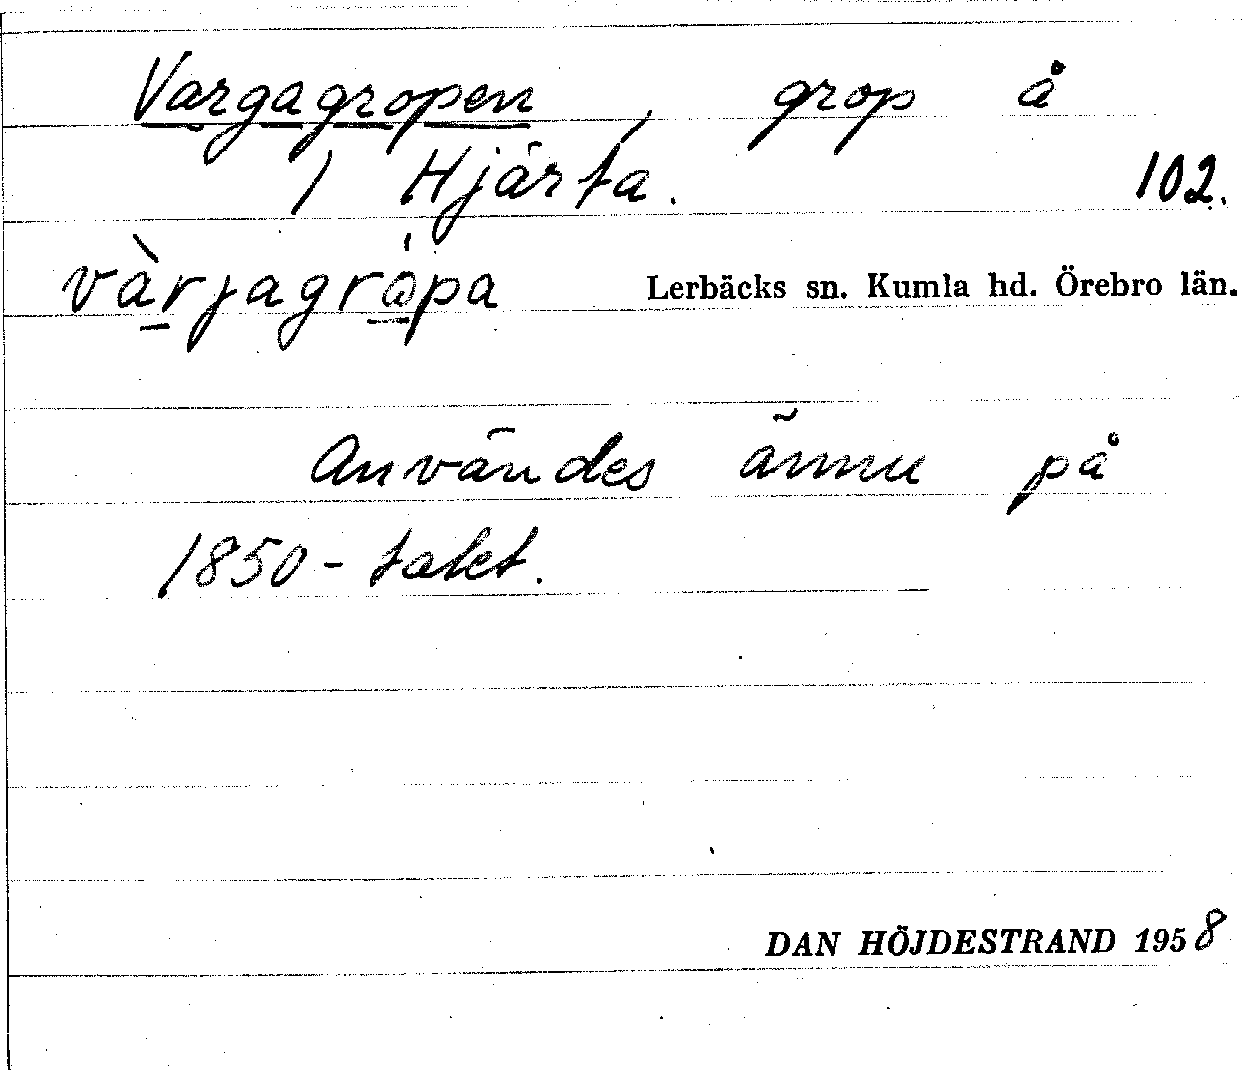 Vargagropen, grop å
1 Hjärta. 102.
vàrjagråpa Lerbäcks sn. Kumla hd. Örebro län.
Användes ännu på
1850-talet.
DAN HÖJDESTRAND 1958